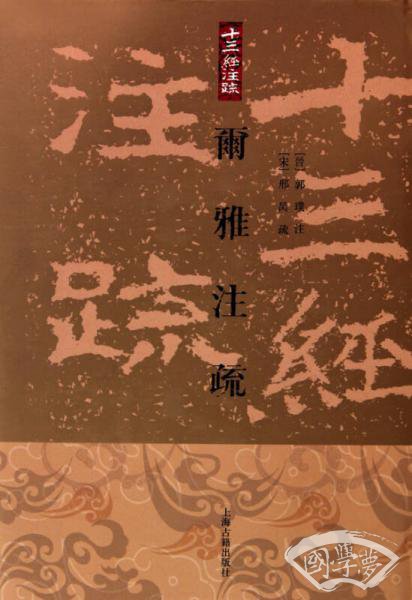 十三經注疏
十三經
注疏
爾雅注疏
［晉］郭 璞 注
［宋］邢 昺 疏
上海古籍出版社
國學夢